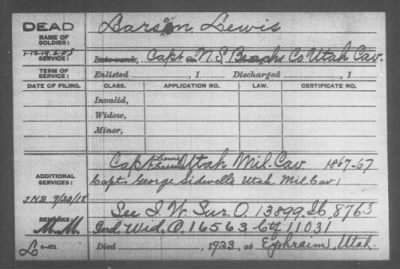 DEAD
NAME OF SOLDIER:
Larson Lewis
SERVICE:
Late rank, Capt Co. N.S. Beachs Co Utah Cav.
TERM OF SERVICE:
Enlisted , 1 Discharged , 1
DATE OF FILING. CLASS. APPLICATION NO. LAW. CERTIFICATE NO.
Invalid,
Widow,
Minor,
ADDITIONAL SERVICES:
Capt Utah Mil. Cav 1867-67
Capt. George Sidwells Utah. Mil Cav
REMARKS:
See I. W. Sur. O. 13899. Ib. 8763
M.M. Ind. Wid. O. 16563. Ctf 11031
L
Died , 1923, at Ephraim, Utah.